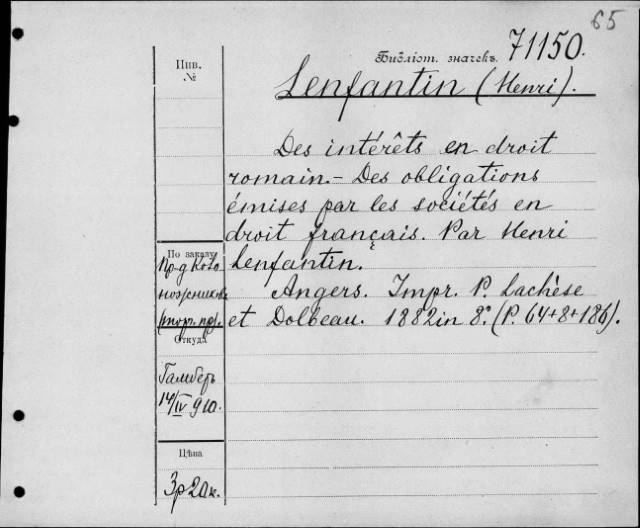 65
Библіот. значекъ 71150.
Инв.
№
Lenfantin (Henri).
Des intérêts en droit
romain. - Des obligations
émises par les sociétés en
droit français. Par Henri
Lenfantin.
Angers. Impr. P. Lachèse
et Dolbeau. 1882 in 8º. (P. 64+8+186).
По заказу
(торг. пр).
Откуда
Гамберъ
14/IV 910.
Цѣна
3р 20к.